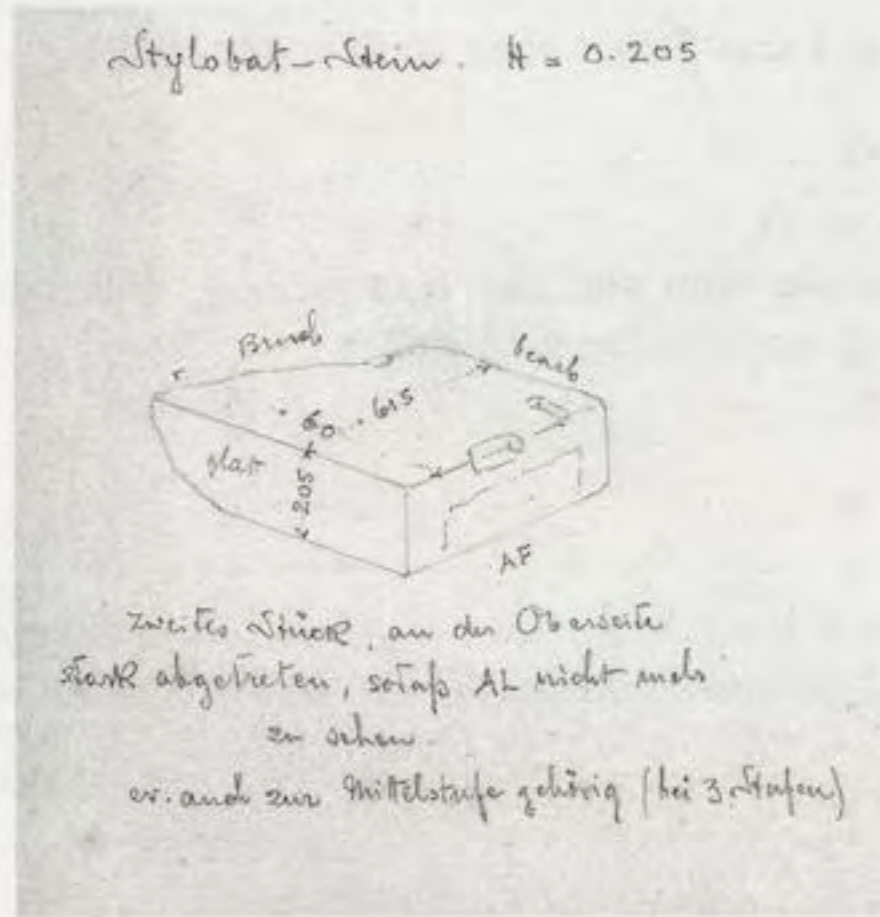 Stylobat-Stein. H = 0.205
Bruch
bearb
60
615
glatt
205
AF
zweites Stück, an der Oberseite
stark abgetreten, sodaß AL nicht mehr
zu sehen.
ev. auch zur Mittelstufe gehörig (bei 3 Stufen)